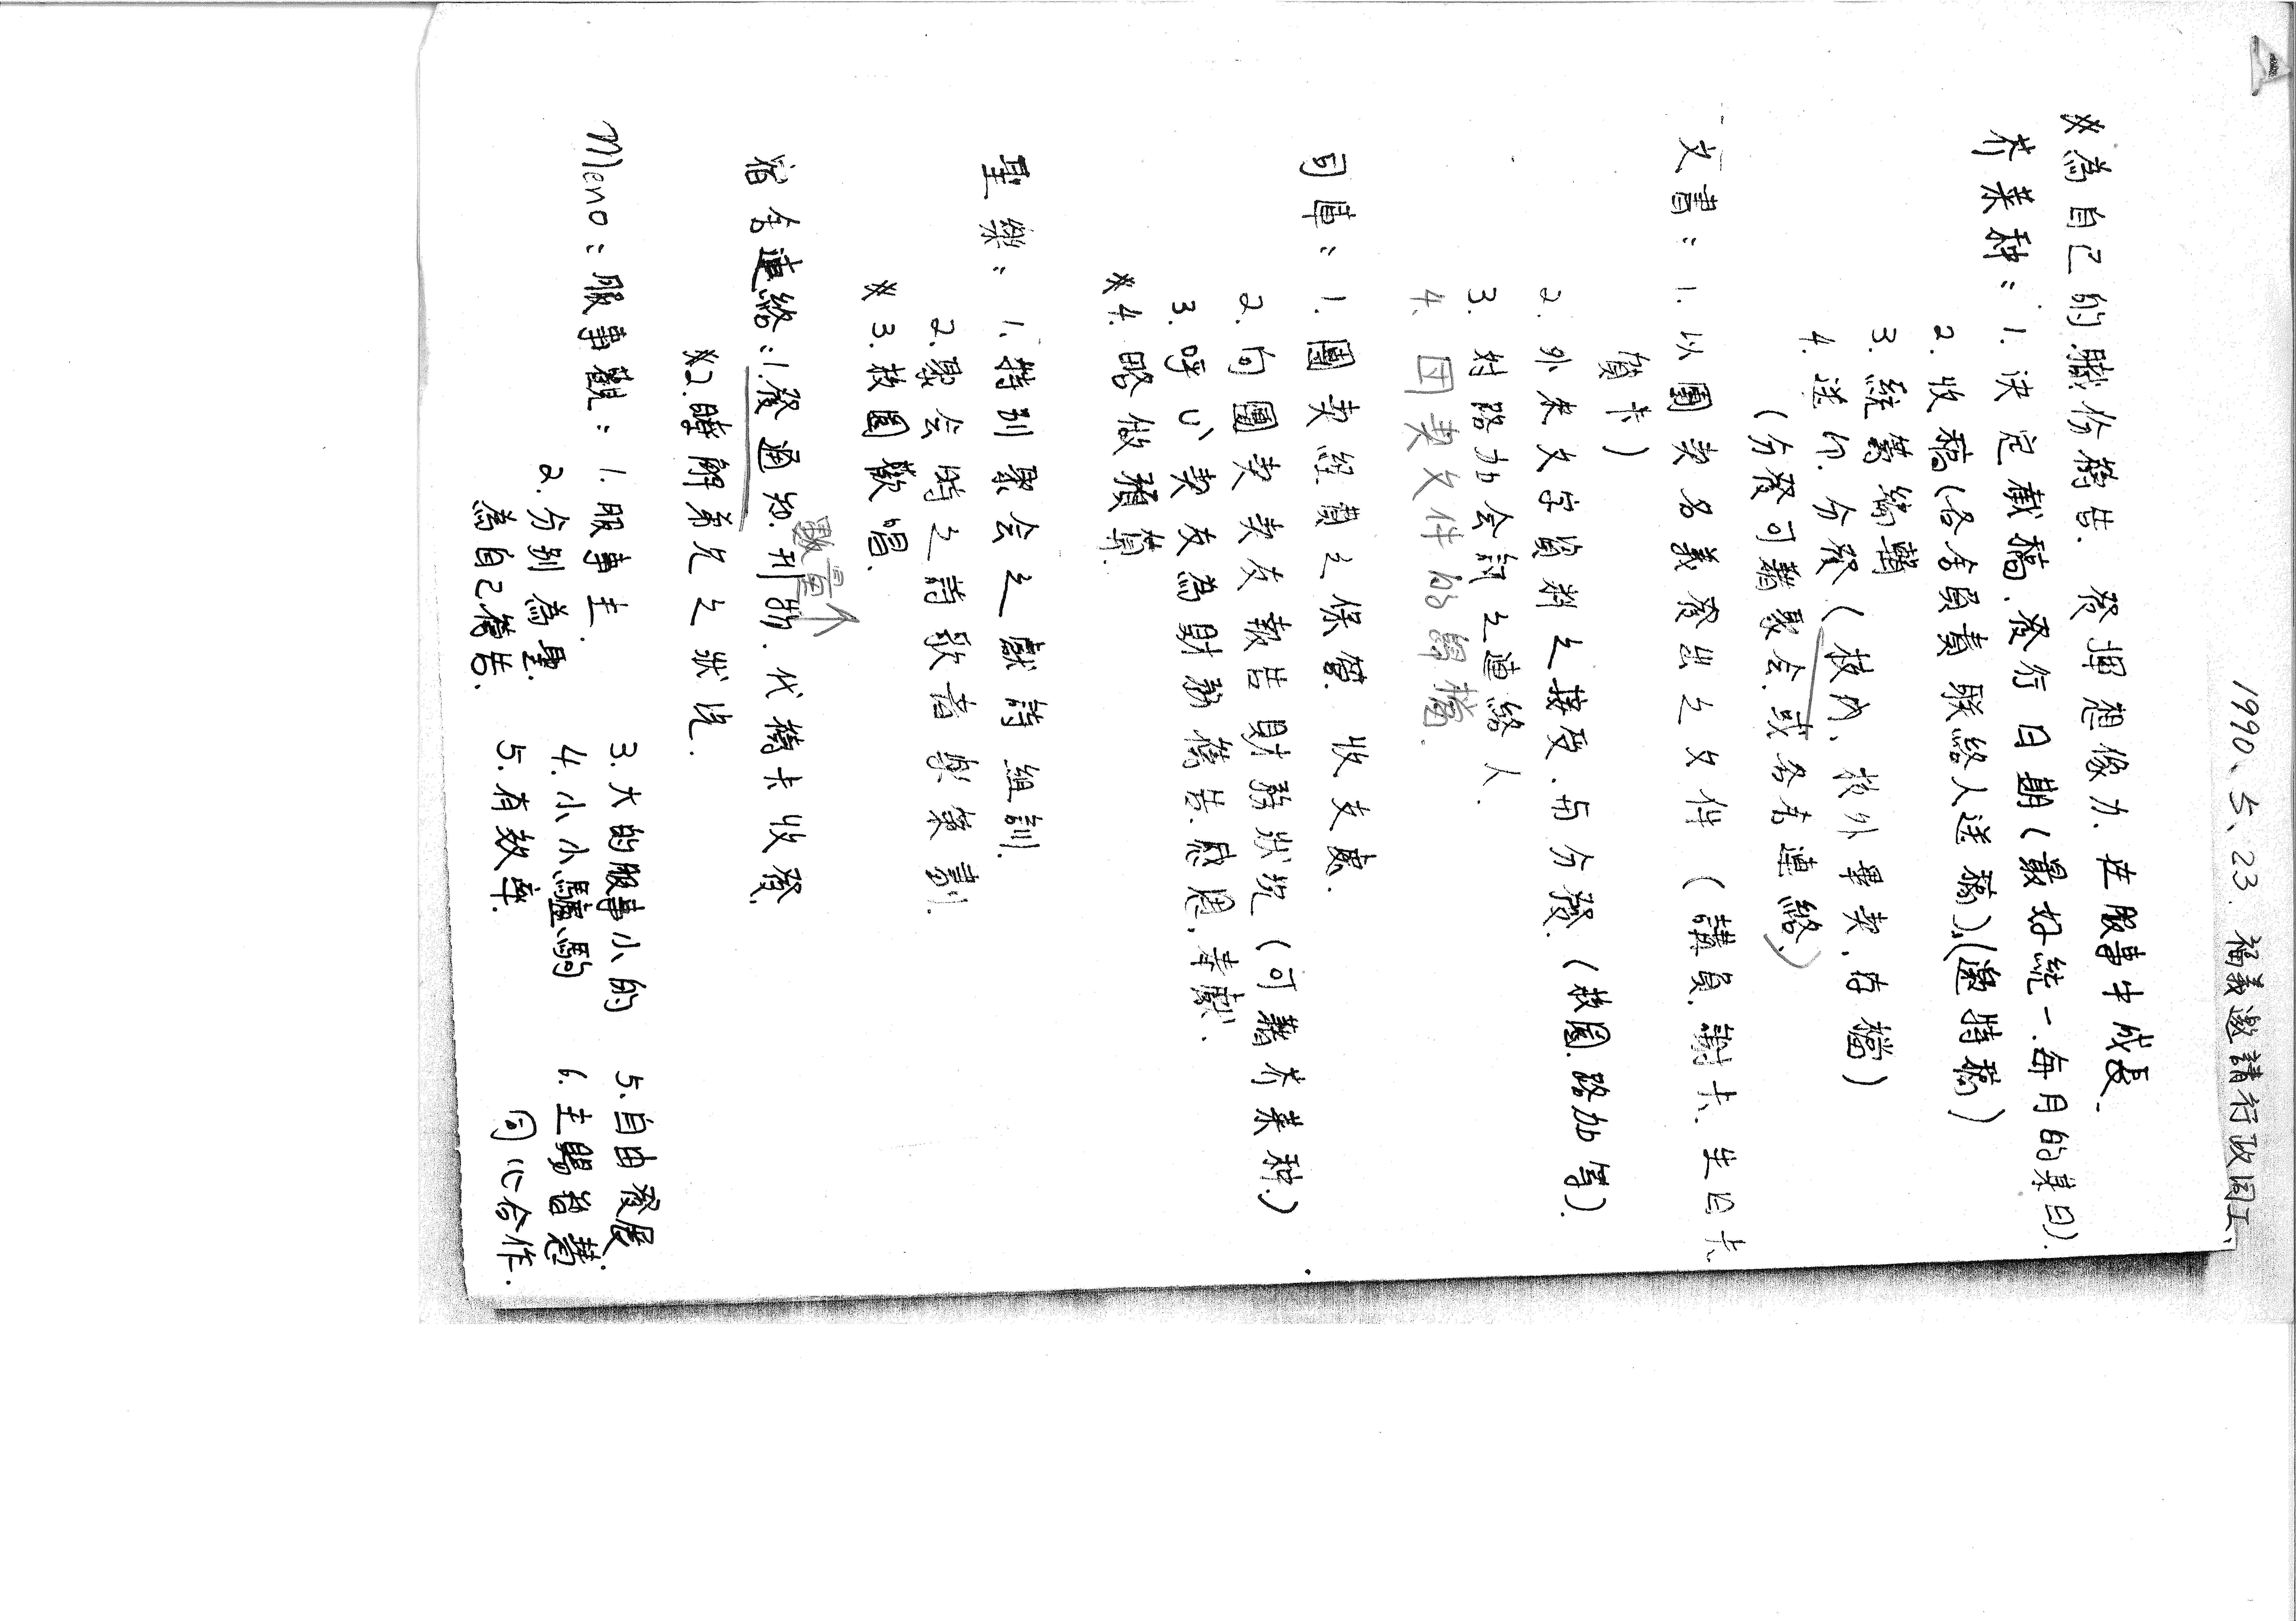 1990、5、23. 福義邀請行政同工
※為自己的職份禱告. 發揮想像力. 在服事中成長.
芥菜种: 1. 決定截稿、發行日期(最好統一.每月的某日).
2. 收稿(各舍負責联絡人送稿).(邀特稿)
3. 統籌編輯
4. 送印. 分發(校內、校外畢契, 存檔)
(分發可藉聚会. 或各舍連絡.)
文書: 1. 以團契名義發出之文件 (講員. 謝卡. 生日卡.
賀卡)
2. 外來文字資料之接受. 与分發. (校園. 路加等).
3. 对路加会訊之連絡人.
4. 团契文件的歸檔.
司庫: 1. 團契經費之保管. 收支處.
2. 向團契契友報告財務狀況 (可藉芥菜种.)
3. 呼心契友為財務禱告. 感恩, 奉獻.
※4. 略做預算.
聖樂: 1. 特別聚会之獻詩組訓.
2. 聚会時之詩歌音樂策劃.
※ 3. 校園歡唱.
宿舍連絡: 1. 發通知. 刊物. 代禱卡收發.
數量↑
※2. 瞭解弟兄之狀況.
Meno: 服事觀: 1. 服事主. 3. 大的服事小的 5. 自由發展
2. 分別為聖. 4. 小小小驢駒 6. 主賜智慧.
為自己禱告. 5. 有效率. 同心合作.